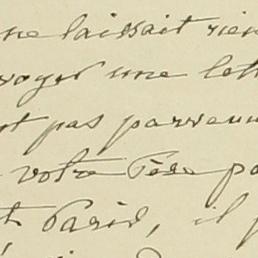 ne laissait rien
voyer une lett
t pas parvenu
votre Père pa
t Paris, il p